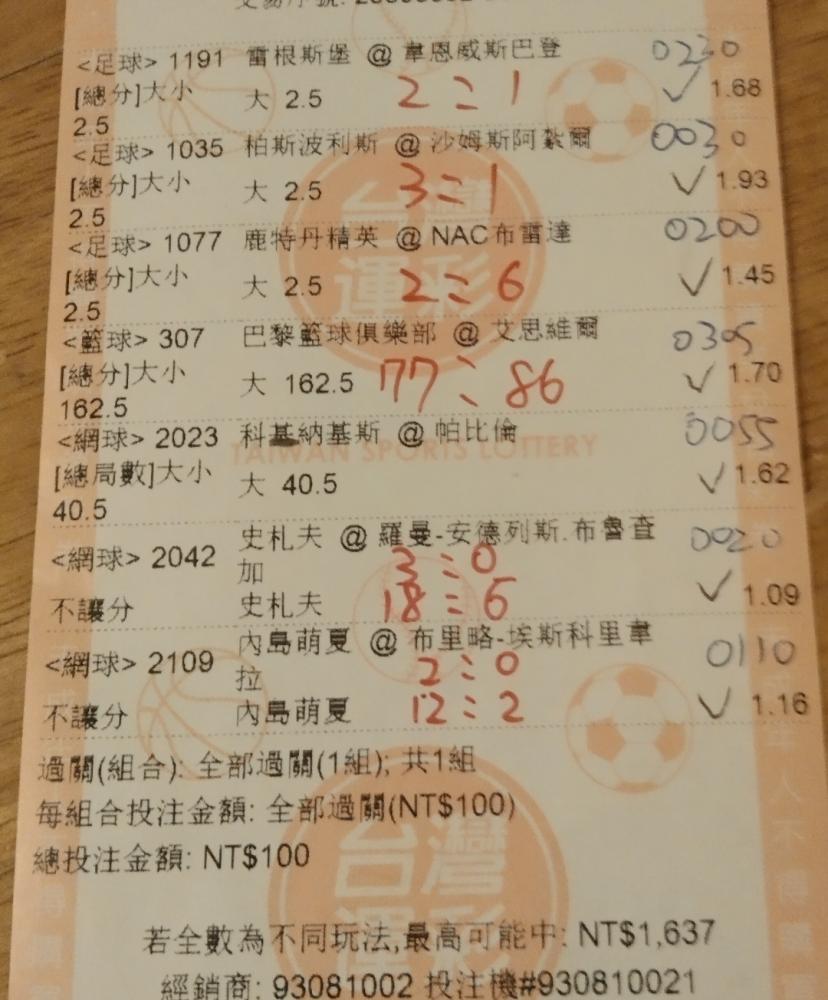 <足球> 1191 雷根斯堡 @ 韋恩威斯巴登 0230
[總分]大小 大 2.5 2:1 ✓ 1.68
2.5
<足球> 1035 柏斯波利斯 @ 沙姆斯阿紮爾 0030
[總分]大小 大 2.5 3:1 ✓ 1.93
2.5
<足球> 1077 鹿特丹精英 @ NAC布雷達 0200
[總分]大小 大 2.5 2:6 ✓ 1.45
2.5
<籃球> 307 巴黎籃球俱樂部 @ 艾思維爾 0305
[總分]大小 大 162.5 77:86 ✓ 1.70
162.5
<網球> 2023 科基納基斯 @ 帕比倫 0055
TAIWAN SPORTS LOTTERY
[總局數]大小 大 40.5 ✓ 1.62
40.5
<網球> 2042 史札夫 @ 羅曼-安德列斯.布魯查加 0020
3:0
不讓分 史札夫 18:6 ✓ 1.09
<網球> 2109 內島萌夏 @ 布里略-埃斯科里韋拉 0110
2:0
不讓分 內島萌夏 12:2 ✓ 1.16
過關(組合): 全部過關(1組); 共1組
每組合投注金額: 全部過關(NT$100)
總投注金額: NT$100
台灣運彩
若全數為不同玩法,最高可能中: NT$1,637
經銷商: 93081002 投注機#930810021